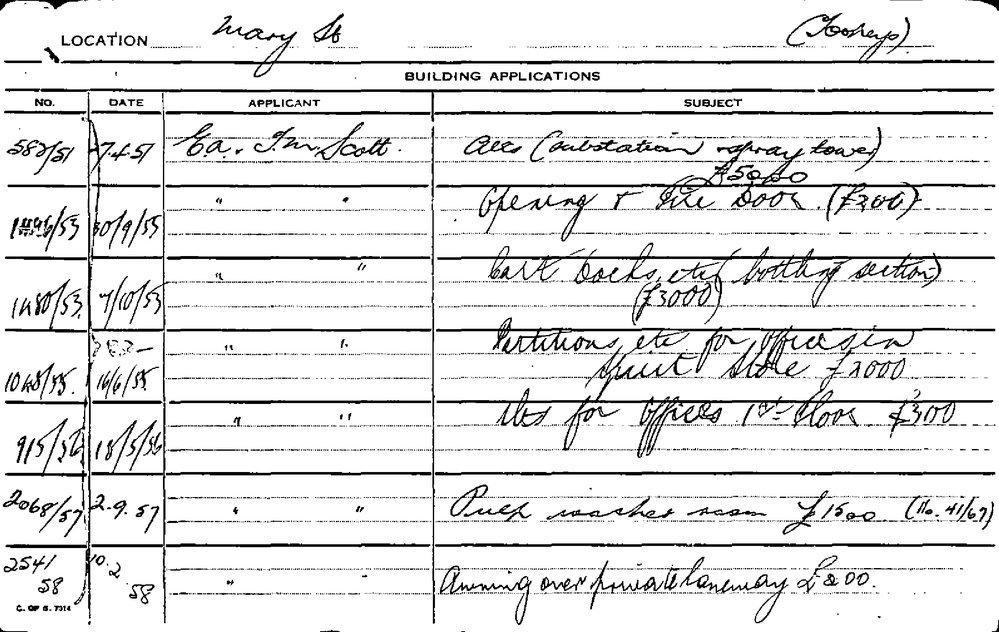 LOCATION Mary St (Tooheys)
BUILDING APPLICATIONS
NO. DATE APPLICANT SUBJECT
582/51 7.4.51 E.a. & T.M. Scott. Alts (substation & spray tower)
£5000
/53 30/9/53 " " Opening & Fire Door. (£200)
1480/53 7/10/53 " " Cart Docks, etc (bottling section)
(£3000)
1048/55. 16/6/55 " " Partitions, etc for offices in
spirit store £2000
915/56 18/5/56 " " Alts for Offices 1st floor £300
2068/57 2.9.57 " " Pulp washer room £1500 (No. 41/67)
2541
58 10.2.58 " " Awning over private laneway £200.
C. OF S. 7314